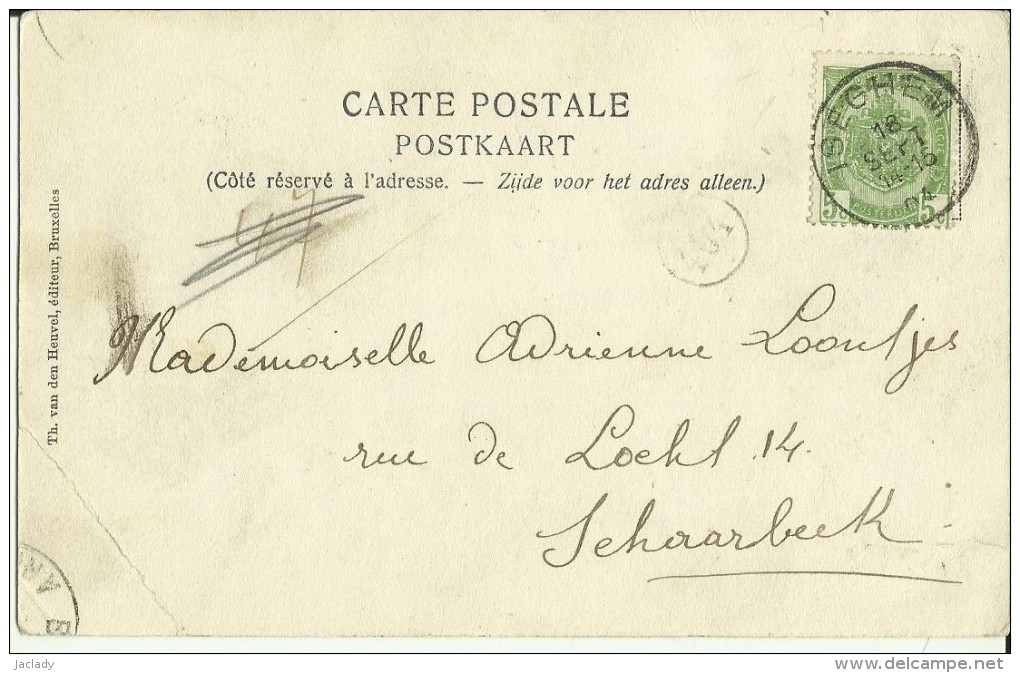 CARTE POSTALE
POSTKAART
(Côté réservé à l'adresse. — Zijde voor het adres alleen.)
ISEGHEM
18
SEPT
14-15
04
5c 5c
POSTERIJEN
Th. van den Heuvel, éditeur, Bruxelles
47
Mademoiselle Adrienne Loontjes
rue de Locht 14.
Schaarbeek
AR
B
jaclady
www.delcampe.net